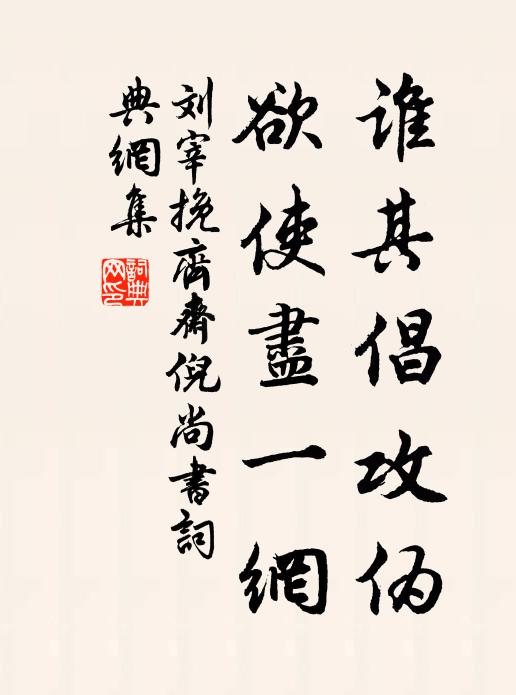 谁其倡攻伪
欲使盡一網
刘宰挽齊齋倪尚書詞
典網集
詞典網印